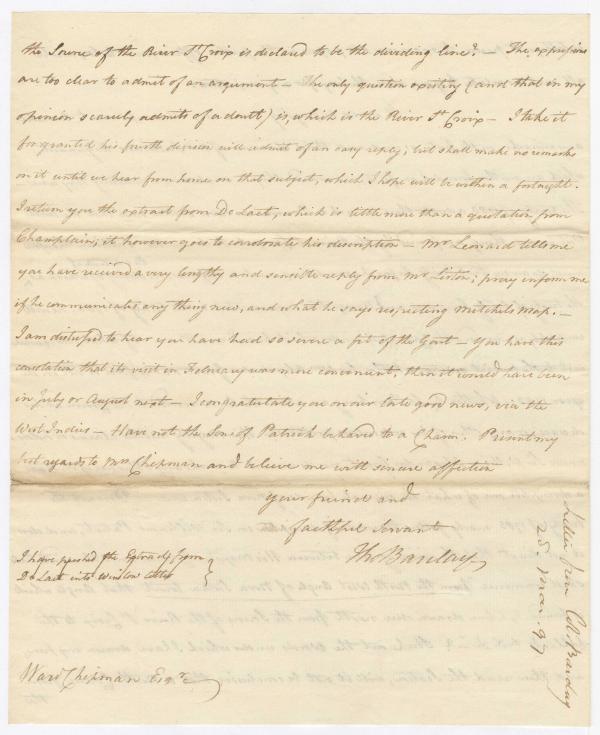 the Source of the River St. Croix is declared to be the dividing line". — The expressions
are too clear to admit of an argument — The only question existing (and that in my
opinion scarcely admits of a doubt) is, which is the River St. Croix — I take it
for granted his fourth division will admit of an easy reply; but shall make no remarks
on it until we hear from home on that subject, which I hope will be within a fortnight.
I return you the extract from De Laet, which is little more than a quotation from
Champlain; it however goes to corroborate his description — Mr. Leonard tells me
you have received a very lengthy and sensible reply from Mr. Liston; pray inform me
if he communicates any thing new, and what he says respecting Mitchels Map. —
I am distressed to hear you have had so severe a fit of the Gout — You have this
consolation that its visit in February was more convenient, than it would have been
in July or August next — I congratulate you on our late good news, via the
West Indies — Have not the Sons of Patrick behaved to a Charm. Present my
best regards to Mrs Chipman and believe me with sincere affection
your friend and
faithful Servant
Tho Barclay
I have pushed the Extracts from
De Laet into Winslow Letter
Ward Chipman Esqre
Letter from Col. Barclay
25. Mar. 97